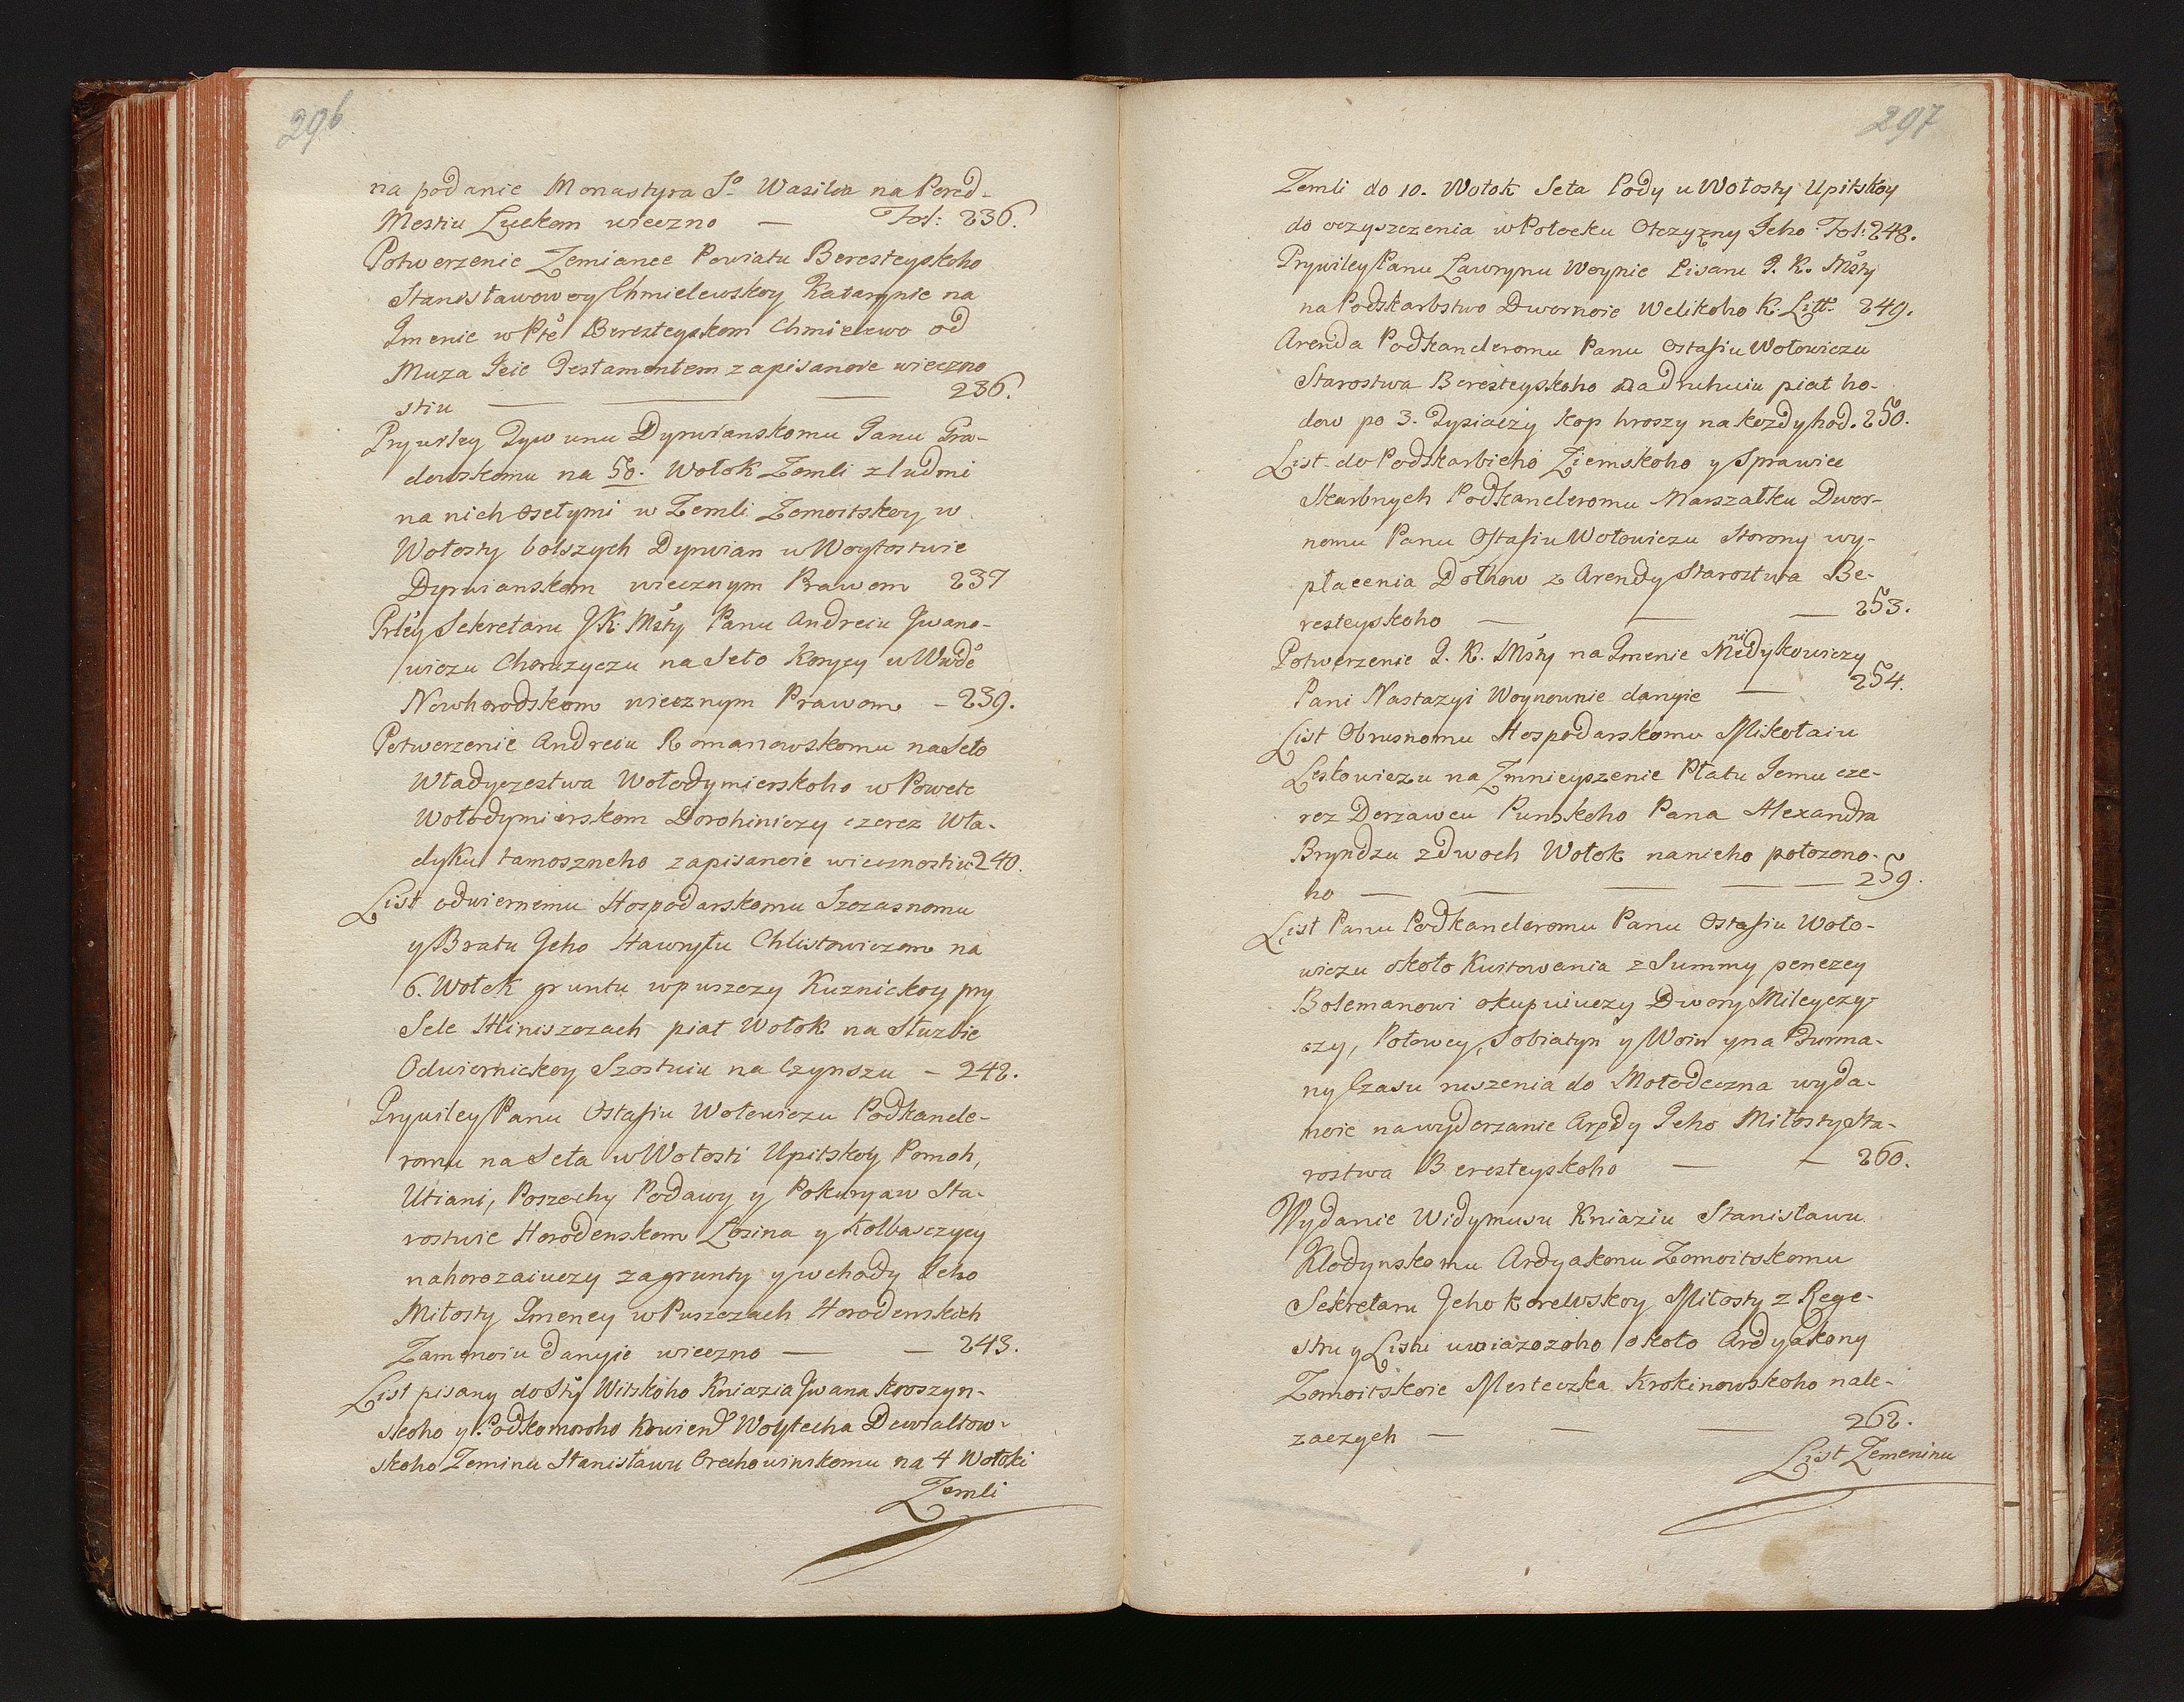 296
na podanie Monastyra Sº Wasilia na Pered-
Mestiu Luckom wieczno — Fol: 236.
Potwerzenie Zemiance Powiatu Beresteyskoho
Stanisławowoy Chmielewskoy Katarynie na
Imenie w Pte Beresteyskom Chmielewo od
Muza Jeie Testamentem zapisanoie wieczno
stiu — — — 236.
Prywiley Tywunu Dyrwianskomu Panu Gra-
dowskomu na 50. Wołok Zemli z ludmi
na nich osełymi w Zemli Zomoitskoy w
Wołosty bolszych Dyrwian w Woytostwie
Dyrwianskom wiecznym Prawom 237
Prley Sekretaru JK: Msty Panu Andreiu Iwano-
wiczu Chorużyczu na Seło Korycy w Wwde
Nowhorodskom wiecznym Prawom — 239.
Potwerzenie Andreiu Romanowskomu na Seło
Władyczestwa Wołodymierskoho w Powete
Wołodymierskom Dorohiniczy czerez Wła-
dyku tamoszneho zapisanoie wiecznostiu 240.
List odwiernemu Hospodarskomu Szczasnomu
y Bratu Jeho Hawryłu Chlistowiczom na
6. Wołok gruntu w puszczy Kuznickoy pry
Sele Hliniszczach piat Wołok na Służbie
Odwiernickoy Szostuiu na Czynszu — 242.
Prywiley Panu Ostafiu Wołowiczu Podkancle-
romu na Seła w Wołosti Upitskoy Pomoh,
Utiani, Poszochy Podawy y Pokury a w Sta-
rostwie Horodenskom Łosina y Kolbasczycy
nahorozaiuczy za grunty y wchody Jeho
Miłosty Imeney w Puszczach Horodenskich
Zamenoiu danyie wieczno — — 243.
List pisany do Stÿ Witskoho Kniazia Iwana Kroszyn-
skoho y Podkomoroho Kowień Woytecha Dewialtow-
skoho Zeminu Stanisławu Orechowinskomu na 4 Wołoki
Zemli
297
Zemli do 10. Wołok Seła Pody u Wołosty Upitskoy
do oczyszczenia w Połocku Otczyzny Jeho Fol: 248.
Prywiley Panu Ławrynu Woynie Pisaru J. K. Msty
na Podskarbstwo Dwornoie Welikoho K. Litt. 249.
Arenda Podkancleromu Panu Ostafiu Wołowiczu
Starostwa Beresteyskoho na druhuiu piat ho-
dow po 3. Tysiaczy kop hroszy na kozdy hod. 250.
List do Podskarbieho Ziemskoho y Sprawiec
Skarbnych Podkancleromu Marszałku Dwor-
nomu Panu Ostafiu Wołowiczu Storony wy-
płacenia Dołhow z Arendy Starostwa Be-
resteyskoho — — — 253.
Potwerzenie J. K. Msty na Imenie Medynikowiczy
Pani Nastazyi Woynownie danyie — 254.
List Obrusnomu Hospodarskomu Mikołaiu
Leskowiczu na Zmnieyszenie Płatu Jemu cze-
rez Derzawcu Punskoho Pana Alexandra
Bryndzu z dwoch Wołok na nieho położono-
ho — — — — — 259.
List Panu Podkancleromu Panu Ostafiu Woło-
wiczu około Kwitowania z Summy penezey
Bolemanowi okupuiuczy Dwory Mileyczy-
czy, Połowcy, Sobiatyn y Woin y na Burma-
ny Czasu ruszenia do Mołodeczna wyda-
noie na wyderzanie Aręndy Jeho Miłosty Sta-
rostwa Beresteyskoho — — 260.
Wydanie Widymusu Kniaziu Stanisławu
Kłodynskomu Ardyakonu Zomoitskomu
Sekretaru Jeho Korolewskoy Miłosty z Rege-
stru y Listu uwiazczoho około Ardyakony
Zomoitskoie Mesteczka Krokinowskoho nale-
zaczych — — — 262.
List Zemeninu